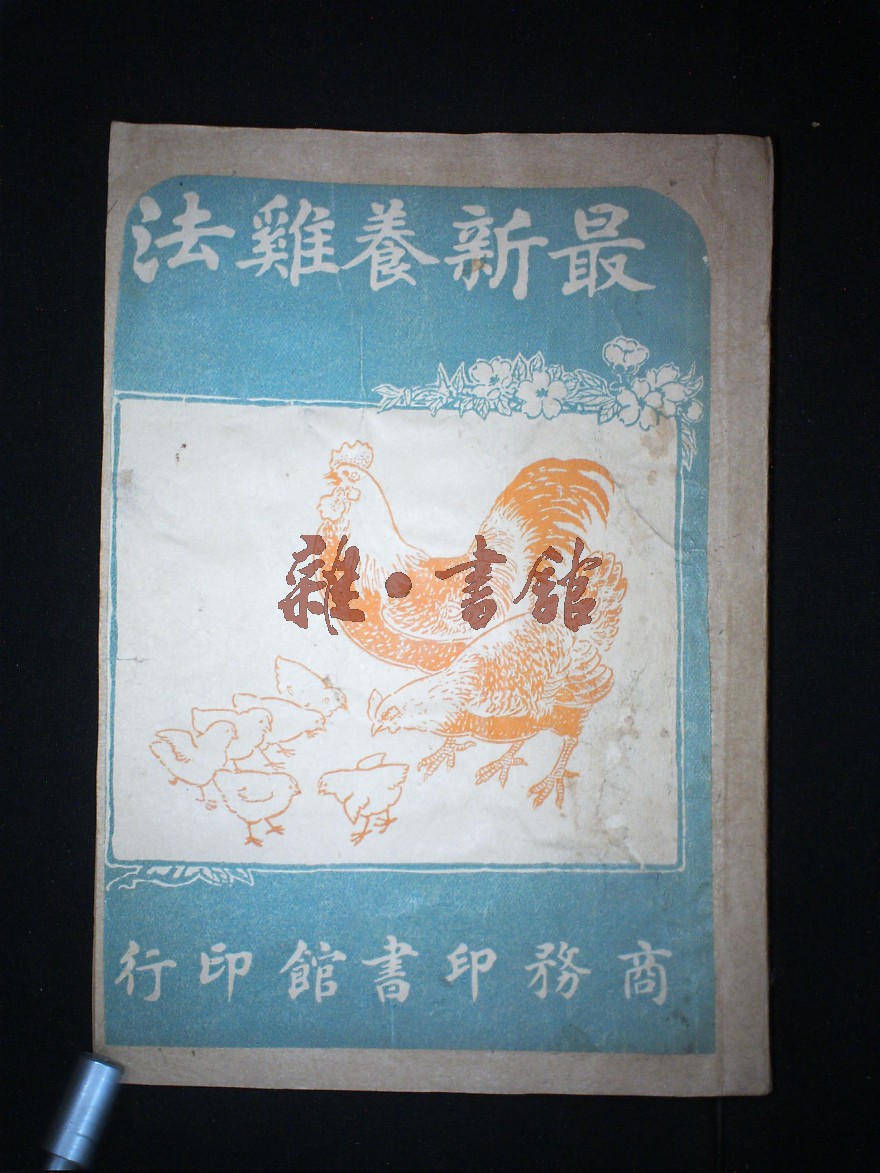 最新養雞法
雜·書館
商務印書館印行